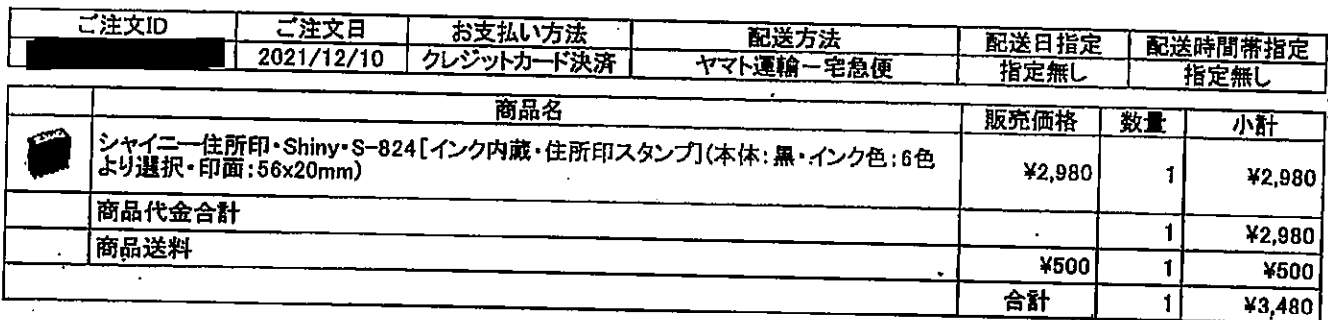 ご注文ID ご注文日 お支払い方法 配送方法 配送日指定 配送時間帯指定
2021/12/10 クレジットカード決済 ヤマト運輸ー宅急便 指定無し 指定無し
商品名 販売価格 数量 小計
シャイニー住所印・Shiny・S-824[インク内蔵・住所印スタンプ](本体:黒・インク色:6色
より選択・印面:56x20mm) ¥2,980 1 ¥2,980
商品代金合計 1 ¥2,980
商品送料 ¥500 1 ¥500
合計 1 ¥3,480